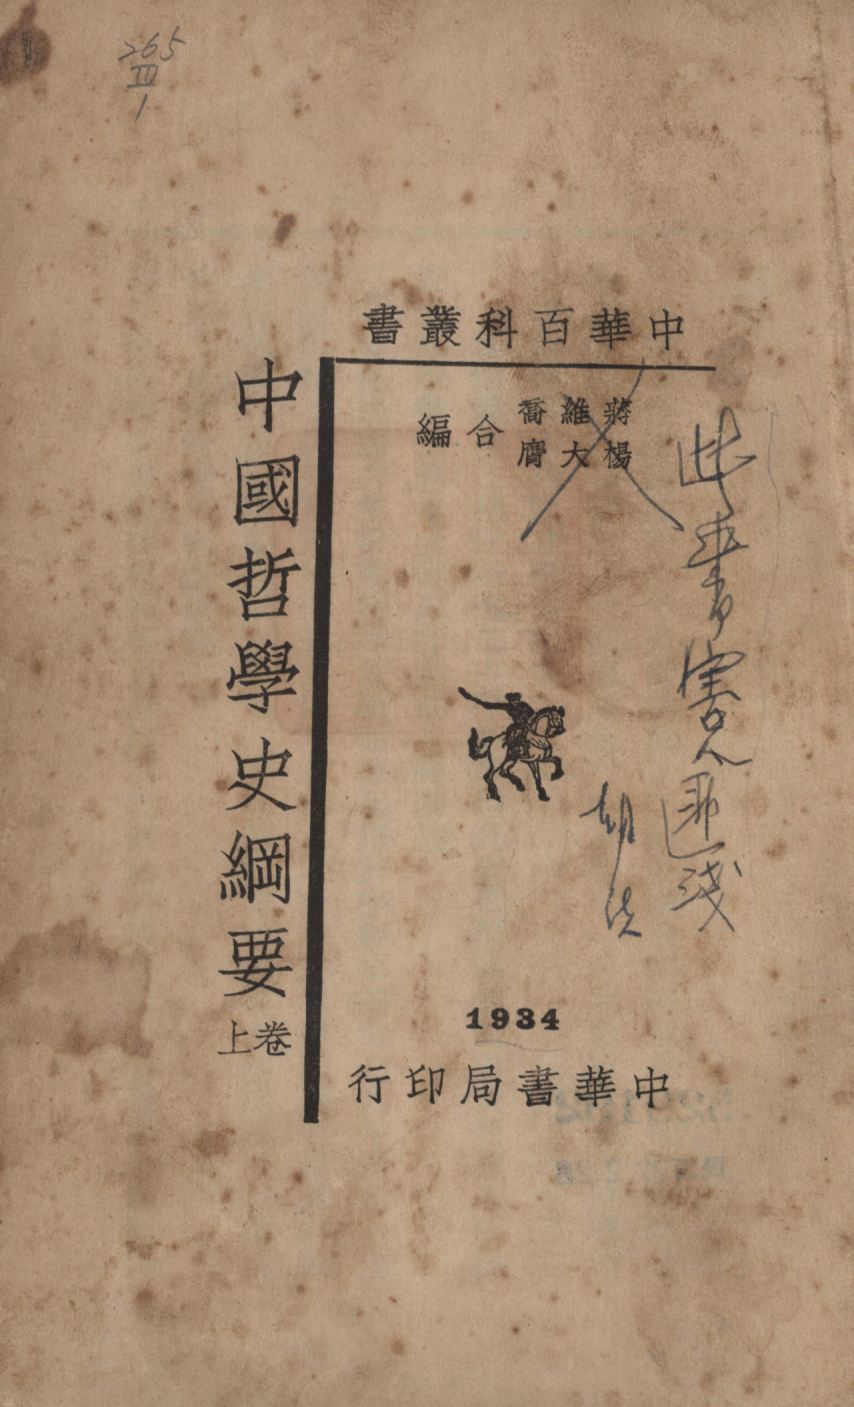 265
IV
1
中華百科叢書
蔣維喬
楊大膺
合編
中國哲學史綱要
卷上
此書害人匪淺
1934
中華書局印行